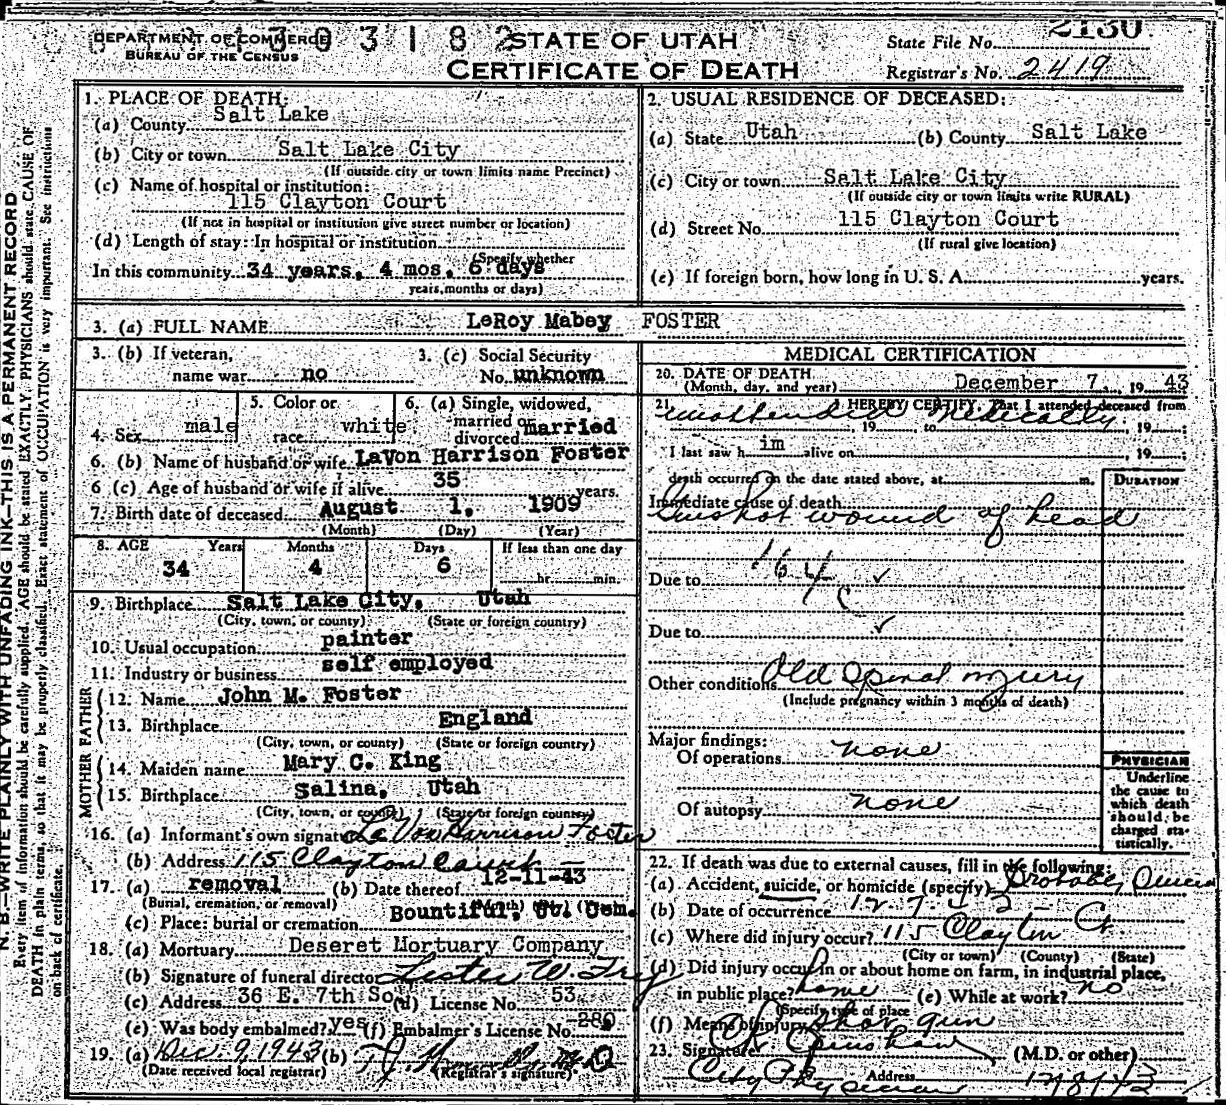 DEPARTMENT OF COMMERCE
BUREAU OF THE CENSUS
1303182
STATE OF UTAH
CERTIFICATE OF DEATH
State File No. 2130
Registrar's No. 2419
N. B.—WRITE PLAINLY WITH UNFADING INK—THIS IS A PERMANENT RECORD
Every item of information should be carefully supplied. AGE should be stated EXACTLY. PHYSICIANS should state CAUSE OF
DEATH in plain terms, so that it may be properly classified. Exact statement of OCCUPATION is very important. See instructions
on back of certificate.
1. PLACE OF DEATH:
(a) County Salt Lake
(b) City or town Salt Lake City
(If outside city or town limits name Precinct)
(c) Name of hospital or institution:
115 Clayton Court
(If not in hospital or institution give street number or location)
(d) Length of stay: In hospital or institution
(Specify whether
In this community 34 years, 4 mos. 6 days
years, months or days)
2. USUAL RESIDENCE OF DECEASED:
(a) State Utah (b) County Salt Lake
(c) City or town Salt Lake City
(If outside city or town limits write RURAL)
(d) Street No. 115 Clayton Court
(If rural give location)
(e) If foreign born, how long in U. S. A. years.
3. (a) FULL NAME LeRoy Mabey FOSTER
3. (b) If veteran, name war no
3. (c) Social Security No. unknown
4. Sex male
5. Color or race white
6. (a) Single, widowed, married or divorced married
6. (b) Name of husband or wife LaVon Harrison Foster
6 (c) Age of husband or wife if alive 35 years.
7. Birth date of deceased August 1, 1909
(Month) (Day) (Year)
8. AGE Years Months Days If less than one day
34 4 6 hr. min.
9. Birthplace Salt Lake City, Utah
(City, town, or county) (State or foreign country)
10. Usual occupation painter
11. Industry or business self employed
FATHER
12. Name John M. Foster
13. Birthplace England
(City, town, or county) (State or foreign country)
MOTHER
14. Maiden name Mary C. King
15. Birthplace Salina, Utah
(City, town, or county) (State or foreign country)
16. (a) Informant's own signature La Von Harrison Foster
(b) Address 115 Clayton Court
17. (a) removal (b) Date thereof 12-11-43
(Burial, cremation, or removal) (Month) (Day) (Year)
(c) Place: burial or cremation Bountiful, Ut. Cem.
18. (a) Mortuary Deseret Mortuary Company
(b) Signature of funeral director Lester W. Fry
(c) Address 36 E. 7th So. (d) License No. 53
(e) Was body embalmed? yes (f) Embalmer's License No. 280
19. (a) Dec. 9, 1943 (b)
(Date received local registrar) (Registrar's signature)
MEDICAL CERTIFICATION
20. DATE OF DEATH
(Month, day, and year) December 7, 1943
21. I HEREBY CERTIFY, That I attended deceased from
unattended medically, 19 to , 19 ;
I last saw him alive on , 19 ;
death occurred on the date stated above, at m.
DURATION
Immediate cause of death
Gunshot wound of head
Due to 164 c ✓
Due to ✓
Other conditions Old Spinal injury
(Include pregnancy within 3 months of death)
Major findings:
Of operations none
Of autopsy none
PHYSICIAN
Underline
the cause to
which death
should be
charged sta-
tistically.
22. If death was due to external causes, fill in the following:
(a) Accident, suicide, or homicide (specify) Probably
(b) Date of occurrence 12-7-
(c) Where did injury occur? 115 Clayton Ct.
(City or town) (County) (State)
(d) Did injury occur in or about home on farm, in industrial place,
in public place? home (e) While at work? no
(Specify type of place
(f) Means of injury shot gun
23. Signature (M.D. or other)
City Physician Address 12/8/43